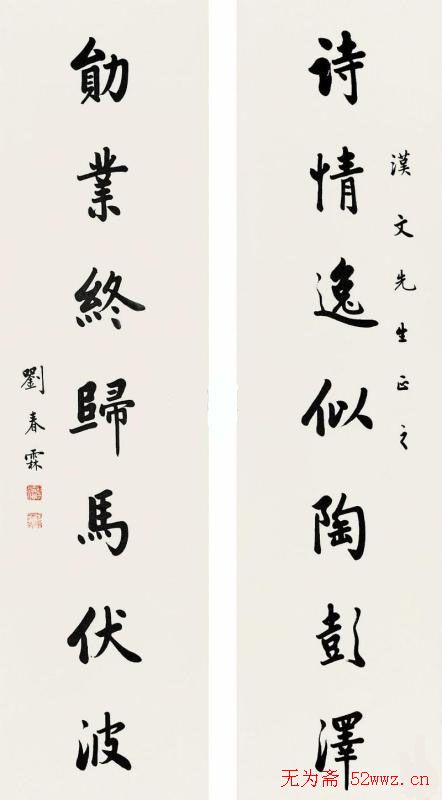 漢文先生正之
诗情逸似陶彭澤
勛業終歸馬伏波
劉春霖
无为斋 52wwz.cn